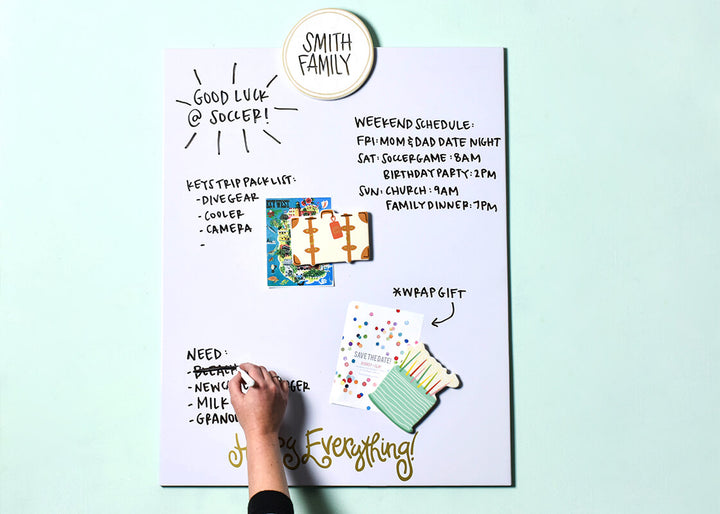 SMITH
FAMILY
GOOD LUCK
@ SOCCER!
WEEKEND SCHEDULE:
FRI: MOM & DAD DATE NIGHT
SAT: SOCCER GAME: 8AM
BIRTHDAY PARTY: 2PM
SUN: CHURCH: 9AM
FAMILY DINNER: 7PM
KEYS TRIP PACK LIST:
- DIVE GEAR
- COOLER
- CAMERA
-
*WRAP GIFT
SAVE THE DATE!
NEED:
- BLEACH
- MILK
Everything!